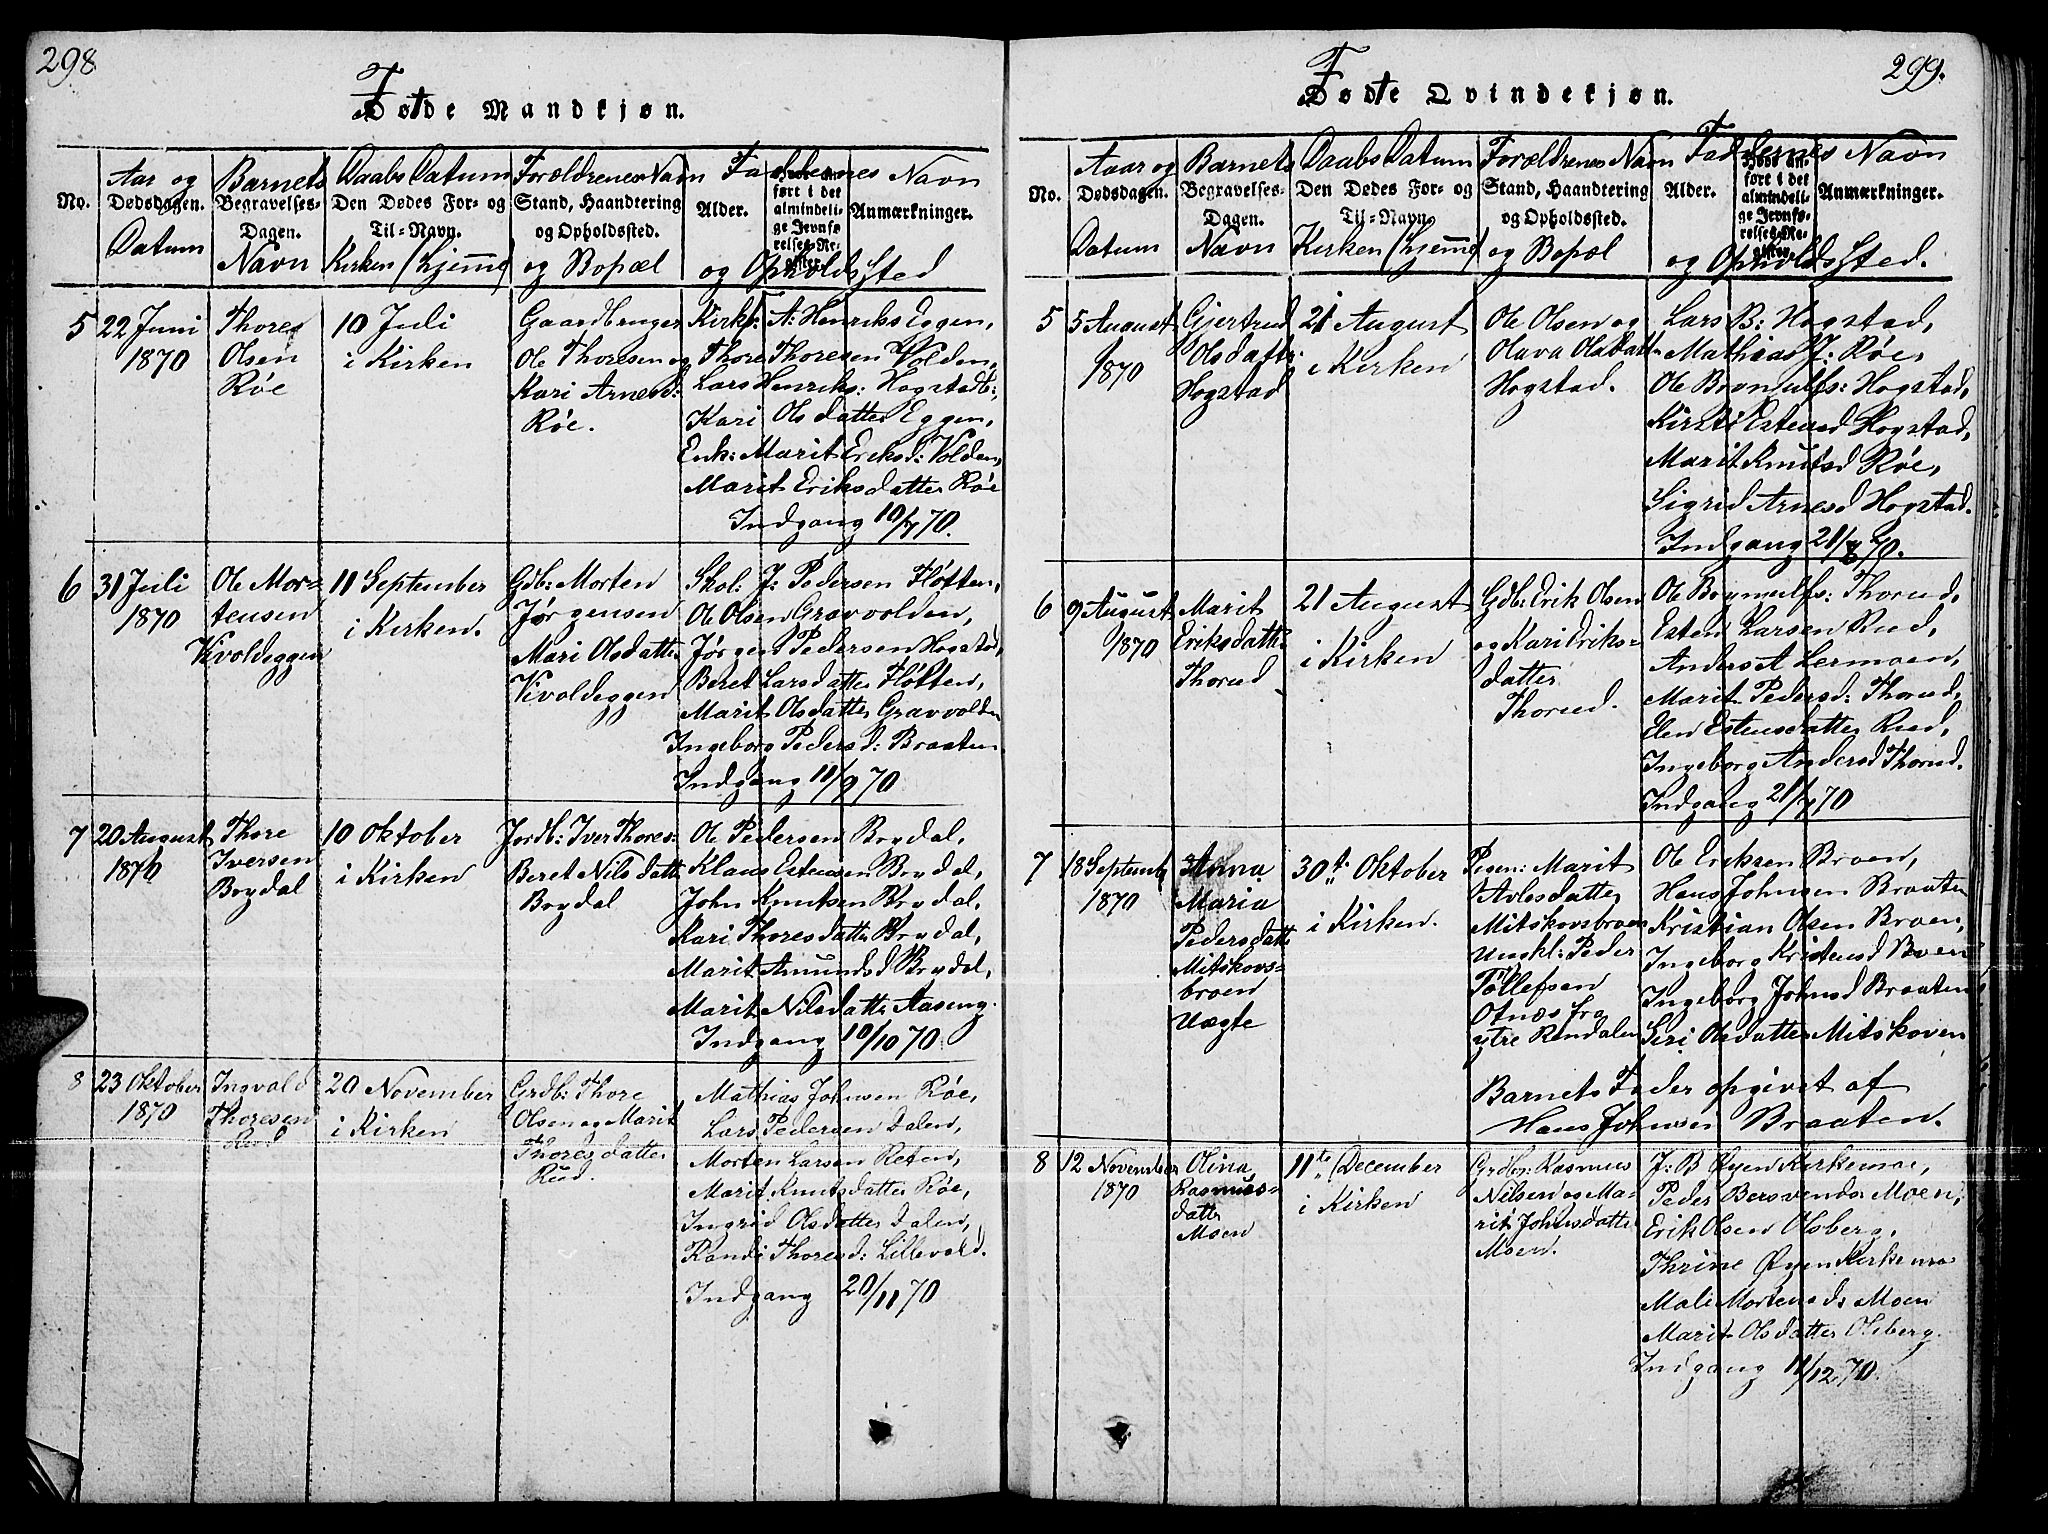 298
Fødte Mandkjøn.
No.
Aar og
Dødsdagen.
Datum
Barnets
Begravelses-
Dagen.
Navn
Daabs Datum
Den Dødes For- og
Til-Navn.
Kirken (Hjemme)
Forældrenes Navn
Stand, Haandtering
og Opholdssted.
og Bopæl
Faddernes Navn
Alder.
Anmærkninger.
og Opholdssted
5
22 Juni
1870
Thores
Olsen
Røe
10 Juli
i Kirken
Gaardbruger
Ole Thoresen og
Kari Arnesd:
Røe.
Kirks: A: Henriks Eggen,
Thore Thoresen Volden,
Lars Henriks: Hogstadb:,
Kari Olsdatter Eggen,
Enk: Marit Eriksd: Volden,
Marit Eriksdatter Røe
Indgang 10/7 70.
6
31 Juli
1870
Ole Mor-
tensen
Kvoldeggen
11 September
i Kirken.
Gdb: Morten
Jørgensen
Mari Olsdatter
Kvoldeggen
Skol: J: Pedersen Fløtten,
Ole Olsen Gravvolden,
Jørgen Pedersen Hogstad,
Beret Larsdatter Fløtten,
Marit Olsdatter Gravvolden
Ingeborg Pedersd: Braaten
Indgang 11/9 70
7
20 August
1870
Thore
Iversen
Brydal
10 Oktober
i Kirken
Jordb: Iver Thores:
Beret Nilsdatt
Brydal
Ole Pedersen Brydal,
Klaus Estensen Brydal,
John Knutsen Brydal,
Kari Thoresdatter Brydal,
Marit Amundsd Brydal,
Marit Nilsdatter Aaseng.
Indgang 10/10 70
8
23 Oktober
1870
Ingvald
Thoresen
Rud
20 November
i Kirken
Grdb: Thore
Olsen og Marit
Thoresdatter
Rud.
Mathias Johnsen Røe,
Lars Pedersen Dalen,
Morten Larsen Reten,
Marit Knutsdatter Røe,
Ingrid Olsdatter Dalen,
Randi Thoresd: Lillevold.
Indgang 20/11 70
299.
Fødte Qvindekjøn.
No.
Aar og
Dødsdagen.
Datum
Barnets
Begravelses-
Dagen.
Navn
Daabs Datum
Den Dødes For- og
Til-Navn.
Kirken (Hjemme)
Forældrenes Navn
Stand, Haandtering
og Opholdssted.
og Bopæl
Faddernes Navn
Alder.
Anmærkninger.
og Opholdssted.
5
5 August
1870
Gjertrud
Olsdatter
Hogstad
21 August
i Kirken
Ole Olsen og
Olava Olsdatter
Hogstad.
Lars B: Hogstad,
Mathias J: Røe,
Ole Brynulfs: Hogstad,
Kirsti Estensd Hogstad,
Marit Knutsd Røe,
Sigrid Arnesd Hogstad.
Indgang 21/8 70.
6
9 August
1870
Marit
Eriksdatter
Thorud
21 August
i Kirken
Gdb: Erik Olsen
og Kari Eriks-
datter
Thorud.
Ole Brynulfs: Thorud,
Esten Larsen Rud,
Anders A Lermoen,
Marit Pedersd: Thorud,
Elen Estensdatter Rud,
Ingeborg Andersd Thorud.
Indgang 21/7 70
7
18 Septemb
1870
Anna
Maria
Pedersdatt
Mitskovs-
broen
Uægte
30te Oktober
i Kirken.
Pigen: Marit
Avlesdatter
Mitskovsbroen
Ungkl: Peder
Tollefsen
Otnes fra
ytre Rendalen
Ole Eriksen Broen,
Hans Johnsen Braaten
Kristian Olsen Broen,
Ingeborg Kristensd Broen
Ingeborg Johnsd Braaten
Siri Olsdatter Mitskoven
Barnets Fader opgivet af
Hans Johnsen Braaten.
8
12 November
1870
Olina
Rasmus-
datter
Moen
11te December
i Kirken
Grdbr: Rasmus
Nilsen og Ma-
rit Johnsdatter
Moen.
J: B Øyen Kirkemoe,
Peder Bersvendsr Moen,
Erik Olsen Olsberg,
Thrine Øyen Kirkemo
Mali Mortensds Moen
Marit Olsdatter Olsberg.
Indgang 11/12 70.